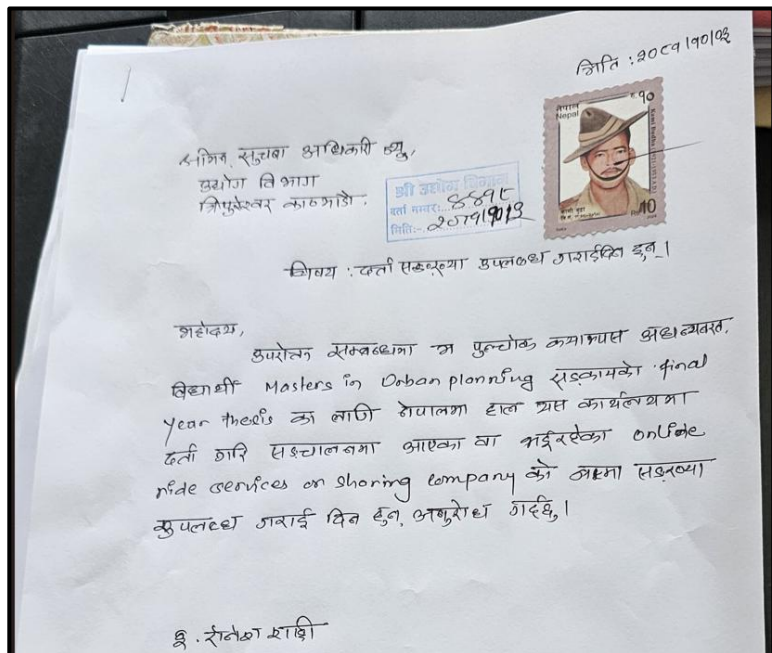 मिति : २०८१।१०।०३
नेपाल
Nepal
रु १०
Rs 10
श्रीमान् सुचना अधिकारी ज्यू,
उद्योग विभाग
त्रिपुरेश्वर काठमाडौं .
श्री उद्योग विभाग
दर्ता नम्बर:
मिति:-
विषय : दर्ता सङ्ख्या उपलब्ध गराईदिन हुन ।
महोदय,
उपरोक्त सम्बन्धमा म पुल्चोक क्याम्पस अध्ययनरत
विद्यार्थी Masters in Urban planning सङ्कायको final
year thesis का लागि नेपालमा हाल यस कार्यलयमा
दर्ता गरि सञ्चालनमा आएका वा भईरहेका online
ride services or sharing company को नाममा सङ्ख्या
उपलब्ध गराई दिन हुन अनुरोध गर्दछु ।